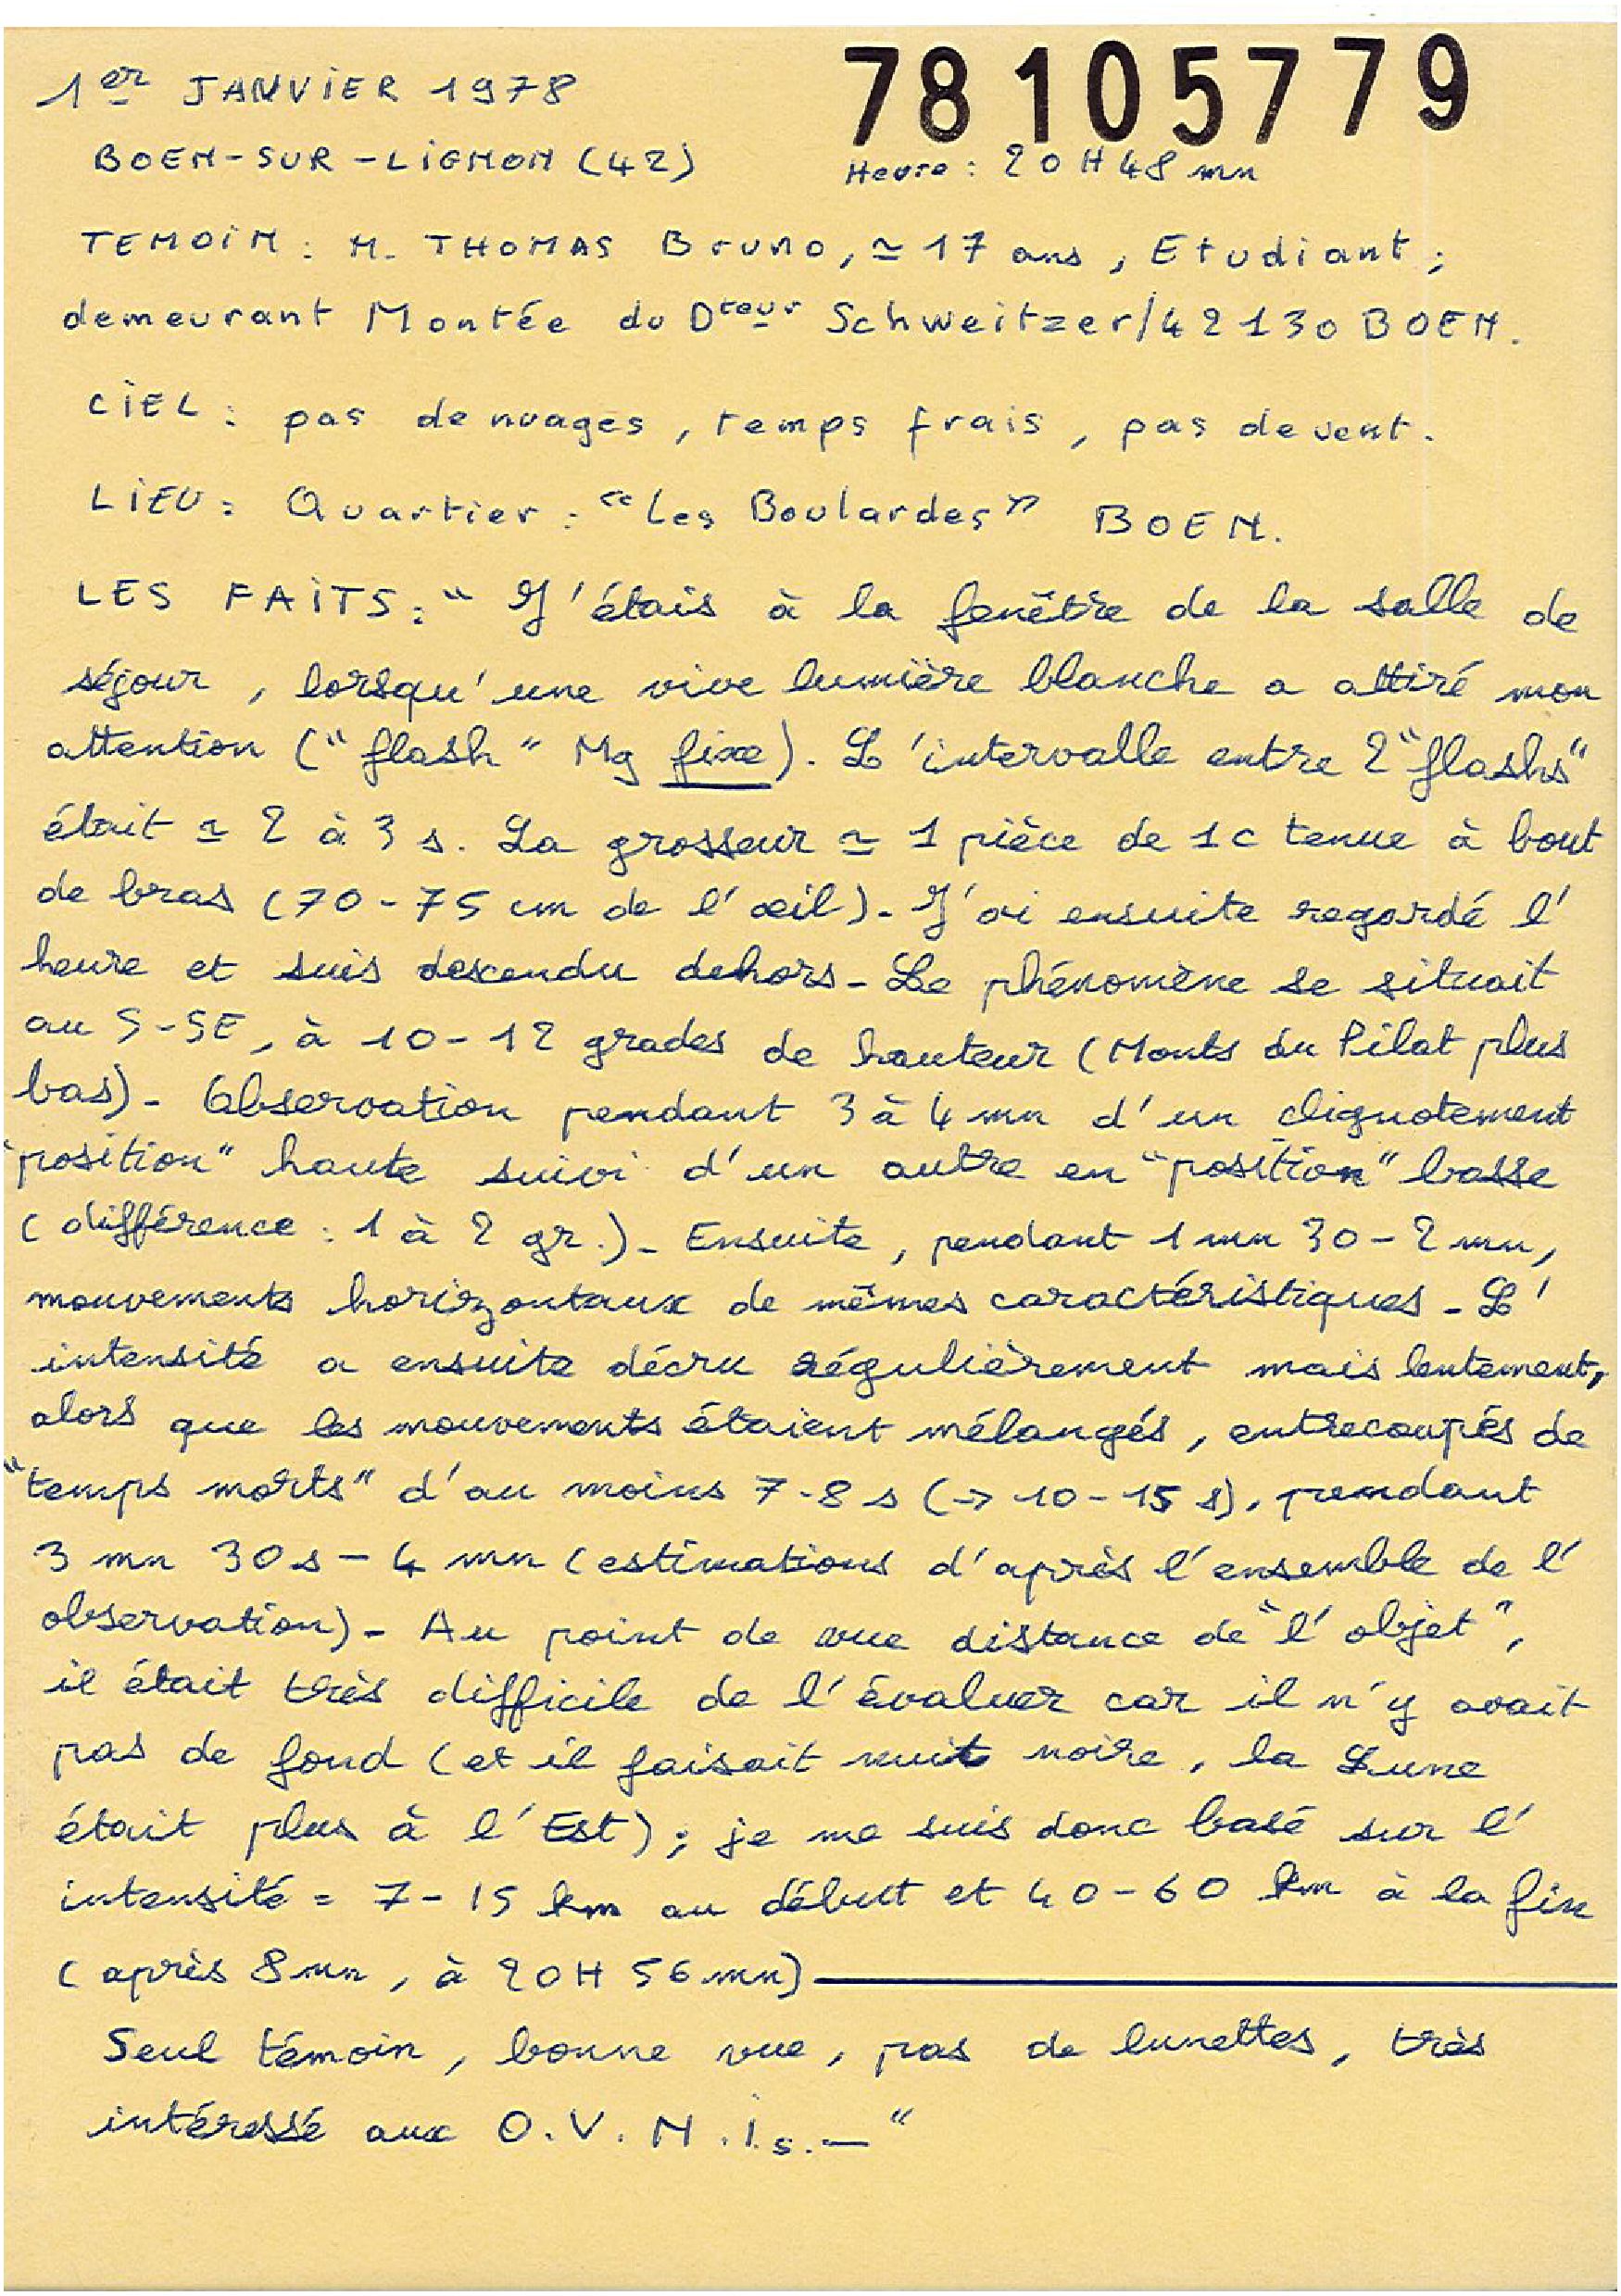 1er JANVIER 1978
78105779
BOEN-SUR-LIGNON (42)
Heure : 20 H 48 mn
TEMOIN : M. THOMAS Bruno, ≃ 17 ans, Etudiant ;
demeurant Montée du Dteur Schweitzer/42130 BOEN.
CIEL : pas de nuages, temps frais, pas de vent.
LIEU : Quartier : "Les Boulardes" BOEN.
LES FAITS : " J'étais à la fenêtre de la salle de
séjour, lorsqu'une vive lumière blanche a attiré mon
attention ("flash" Mg fixe). L'intervalle entre 2 "flashs"
était ≃ 2 à 3 s. La grosseur ≃ 1 pièce de 1c tenue à bout
de bras (70-75 cm de l'œil). J'ai ensuite regardé l'
heure et suis descendu dehors - Le phénomène se situait
au S-SE, à 10-12 grades de hauteur (Monts du Pilat plus
bas) - Observation pendant 3 à 4 mn d'un clignotement
"position" haute suivi d'un autre en "position" basse
(différence : 1 à 2 gr.) - Ensuite, pendant 1 mn 30 - 2 mn,
mouvements horizontaux de mêmes caractéristiques - L'
intensité a ensuite décru régulièrement mais lentement,
alors que les mouvements étaient mélangés, entrecoupés de
"temps morts" d'au moins 7-8 s (-> 10-15 s), pendant
3 mn 30 s - 4 mn (estimations d'après l'ensemble de l'
observation) - Au point de vue distance de "l'objet",
il était très difficile de l'évaluer car il n'y avait
pas de fond (et il faisait nuit noire, la Lune
était plus à l'Est) ; je me suis donc basé sur l'
intensité = 7-15 km au début et 40-60 km à la fin
(après 8 mn, à 20H 56 mn)
Seul témoin, bonne vue, pas de lunettes, très
intéressé aux O.V.N.I.s. - "